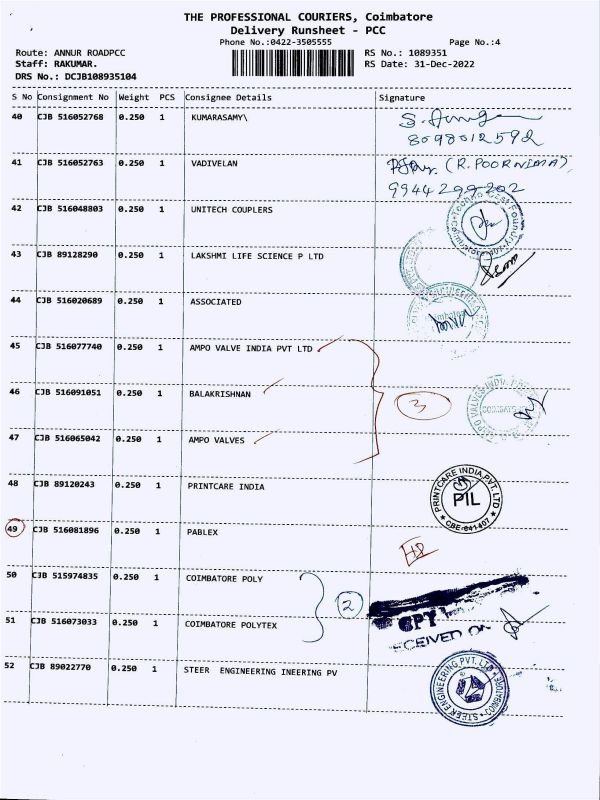 THE PROFESSIONAL COURIERS, Coimbatore
Delivery Runsheet - PCC
Phone No.:0422-3505555 Page No.:4
Route: ANNUR ROADPCC RS No.: 1089351
Staff: RAKUMAR. RS Date: 31-Dec-2022
DRS No.: DCJB108935104
S No Consignment No Weight PCS Consignee Details Signature
40 CJB 516052768 0.250 1 KUMARASAMY\
8098012592
41 CJB 516052763 0.250 1 VADIVELAN (R. POORNIMA),
9944299202
42 CJB 516048803 0.250 1 UNITECH COUPLERS
43 CJB 89128290 0.250 1 LAKSHMI LIFE SCIENCE P LTD
44 CJB 516020689 0.250 1 ASSOCIATED
45 CJB 516077740 0.250 1 AMPO VALVE INDIA PVT LTD
46 CJB 516091051 0.250 1 BALAKRISHNAN 3
47 CJB 516065042 0.250 1 AMPO VALVES
48 CJB 89120243 0.250 1 PRINTCARE INDIA PRINTCARE INDIA PVT. LTD PIL CBE-641407
49 CJB 516081896 0.250 1 PABLEX
50 CJB 515974835 0.250 1 COIMBATORE POLY 2
51 CJB 516073033 0.250 1 COIMBATORE POLYTEX CPT
ECEIVED ON
52 CJB 89022770 0.250 1 STEER ENGINEERING INEERING PV STEER ENGINEERING PVT. LTD COIMBATORE